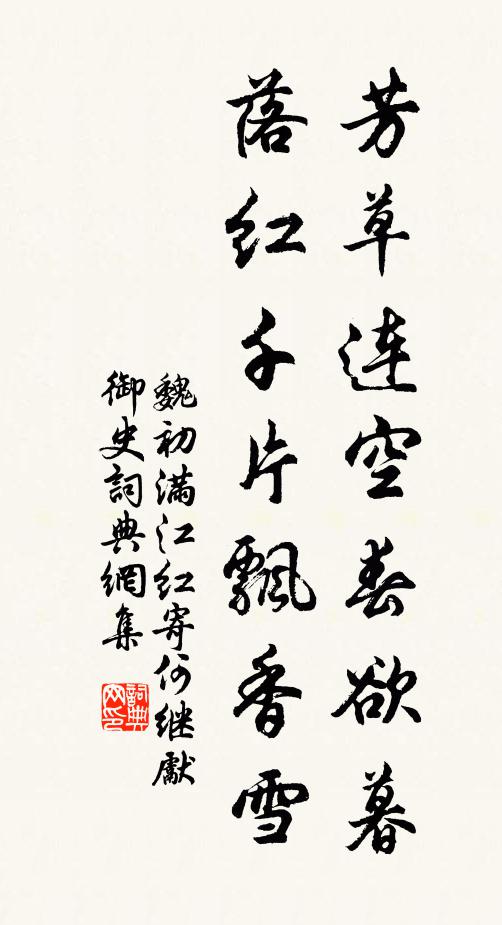 芳草連空春欲暮
落红千片飄香雪
魏初满江红寄何继獻
御史詞典網集
詞典网印